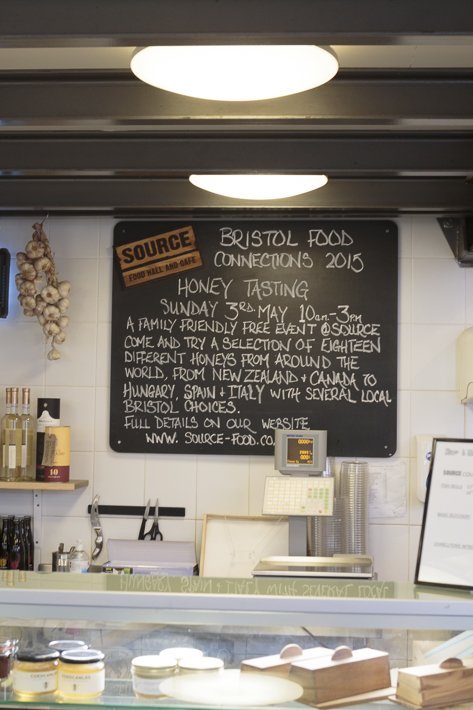 SOURCE
FOOD HALL AND CAFE
BRISTOL FOOD
CONNECTIONS 2015
HONEY TASTING
SUNDAY 3RD MAY 10am-3pm
A FAMILY FRIENDLY FREE EVENT @SOURCE
COME AND TRY A SELECTION OF EIGHTEEN
DIFFERENT HONEYS FROM AROUND THE
WORLD, FROM NEW ZEALAND + CANADA TO
HUNGARY, SPAIN + ITALY WITH SEVERAL LOCAL
BRISTOL CHOICES.
FULL DETAILS ON OUR WEBSITE
WWW. SOURCE-FOOD.CO
10
SOURCE